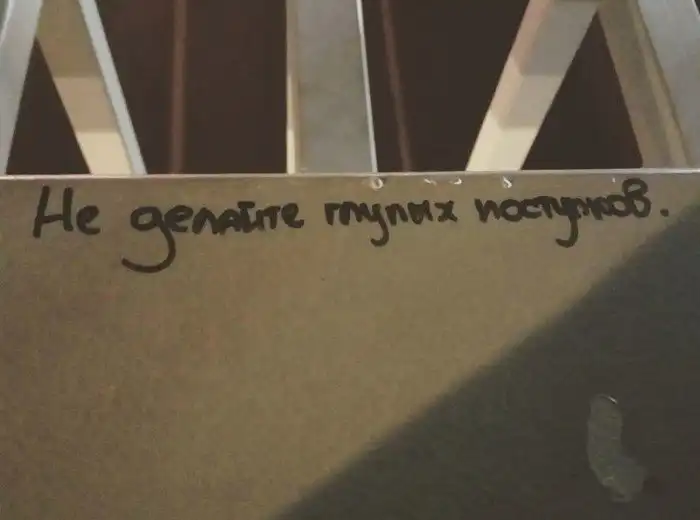 Не делайте глупых поступков.